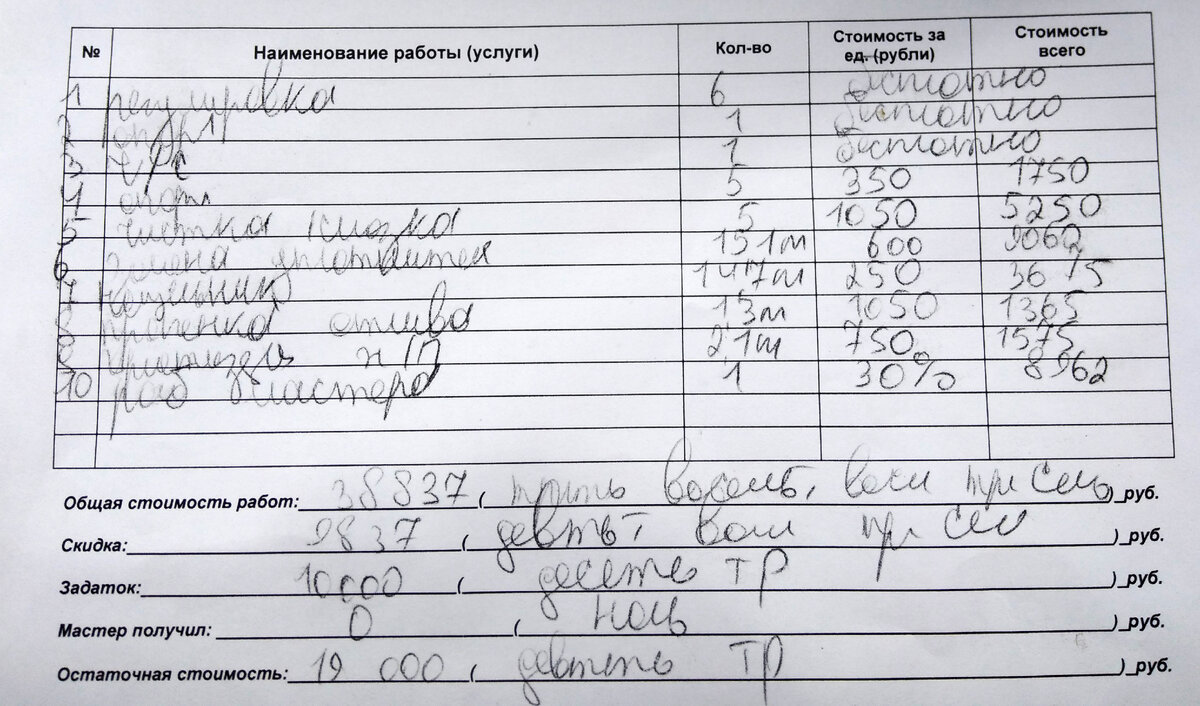 № Наименование работы (услуги) Кол-во Стоимость за ед. (рубли) Стоимость всего
1 регулировка 6 бесплатно
2 1 бесплатно
3 1 бесплатно
4 5 350 1750
5 чистка 5 1050 5250
6 замена 15 1м 600 9062
7 14 7м 250 3675
8 отлива 13м 1050 1365
9 2,1м 750 1575
10 раб мастера 1 30% 8962
Общая стоимость работ: 38837 ( трить восемь, восм три семь ) руб.
Скидка: 9837 ( девять восм три сем ) руб.
Задаток: 10000 ( десеть тр ) руб.
Мастер получил: 0 ( ноль ) руб.
Остаточная стоимость: 19 000 ( тр ) руб.